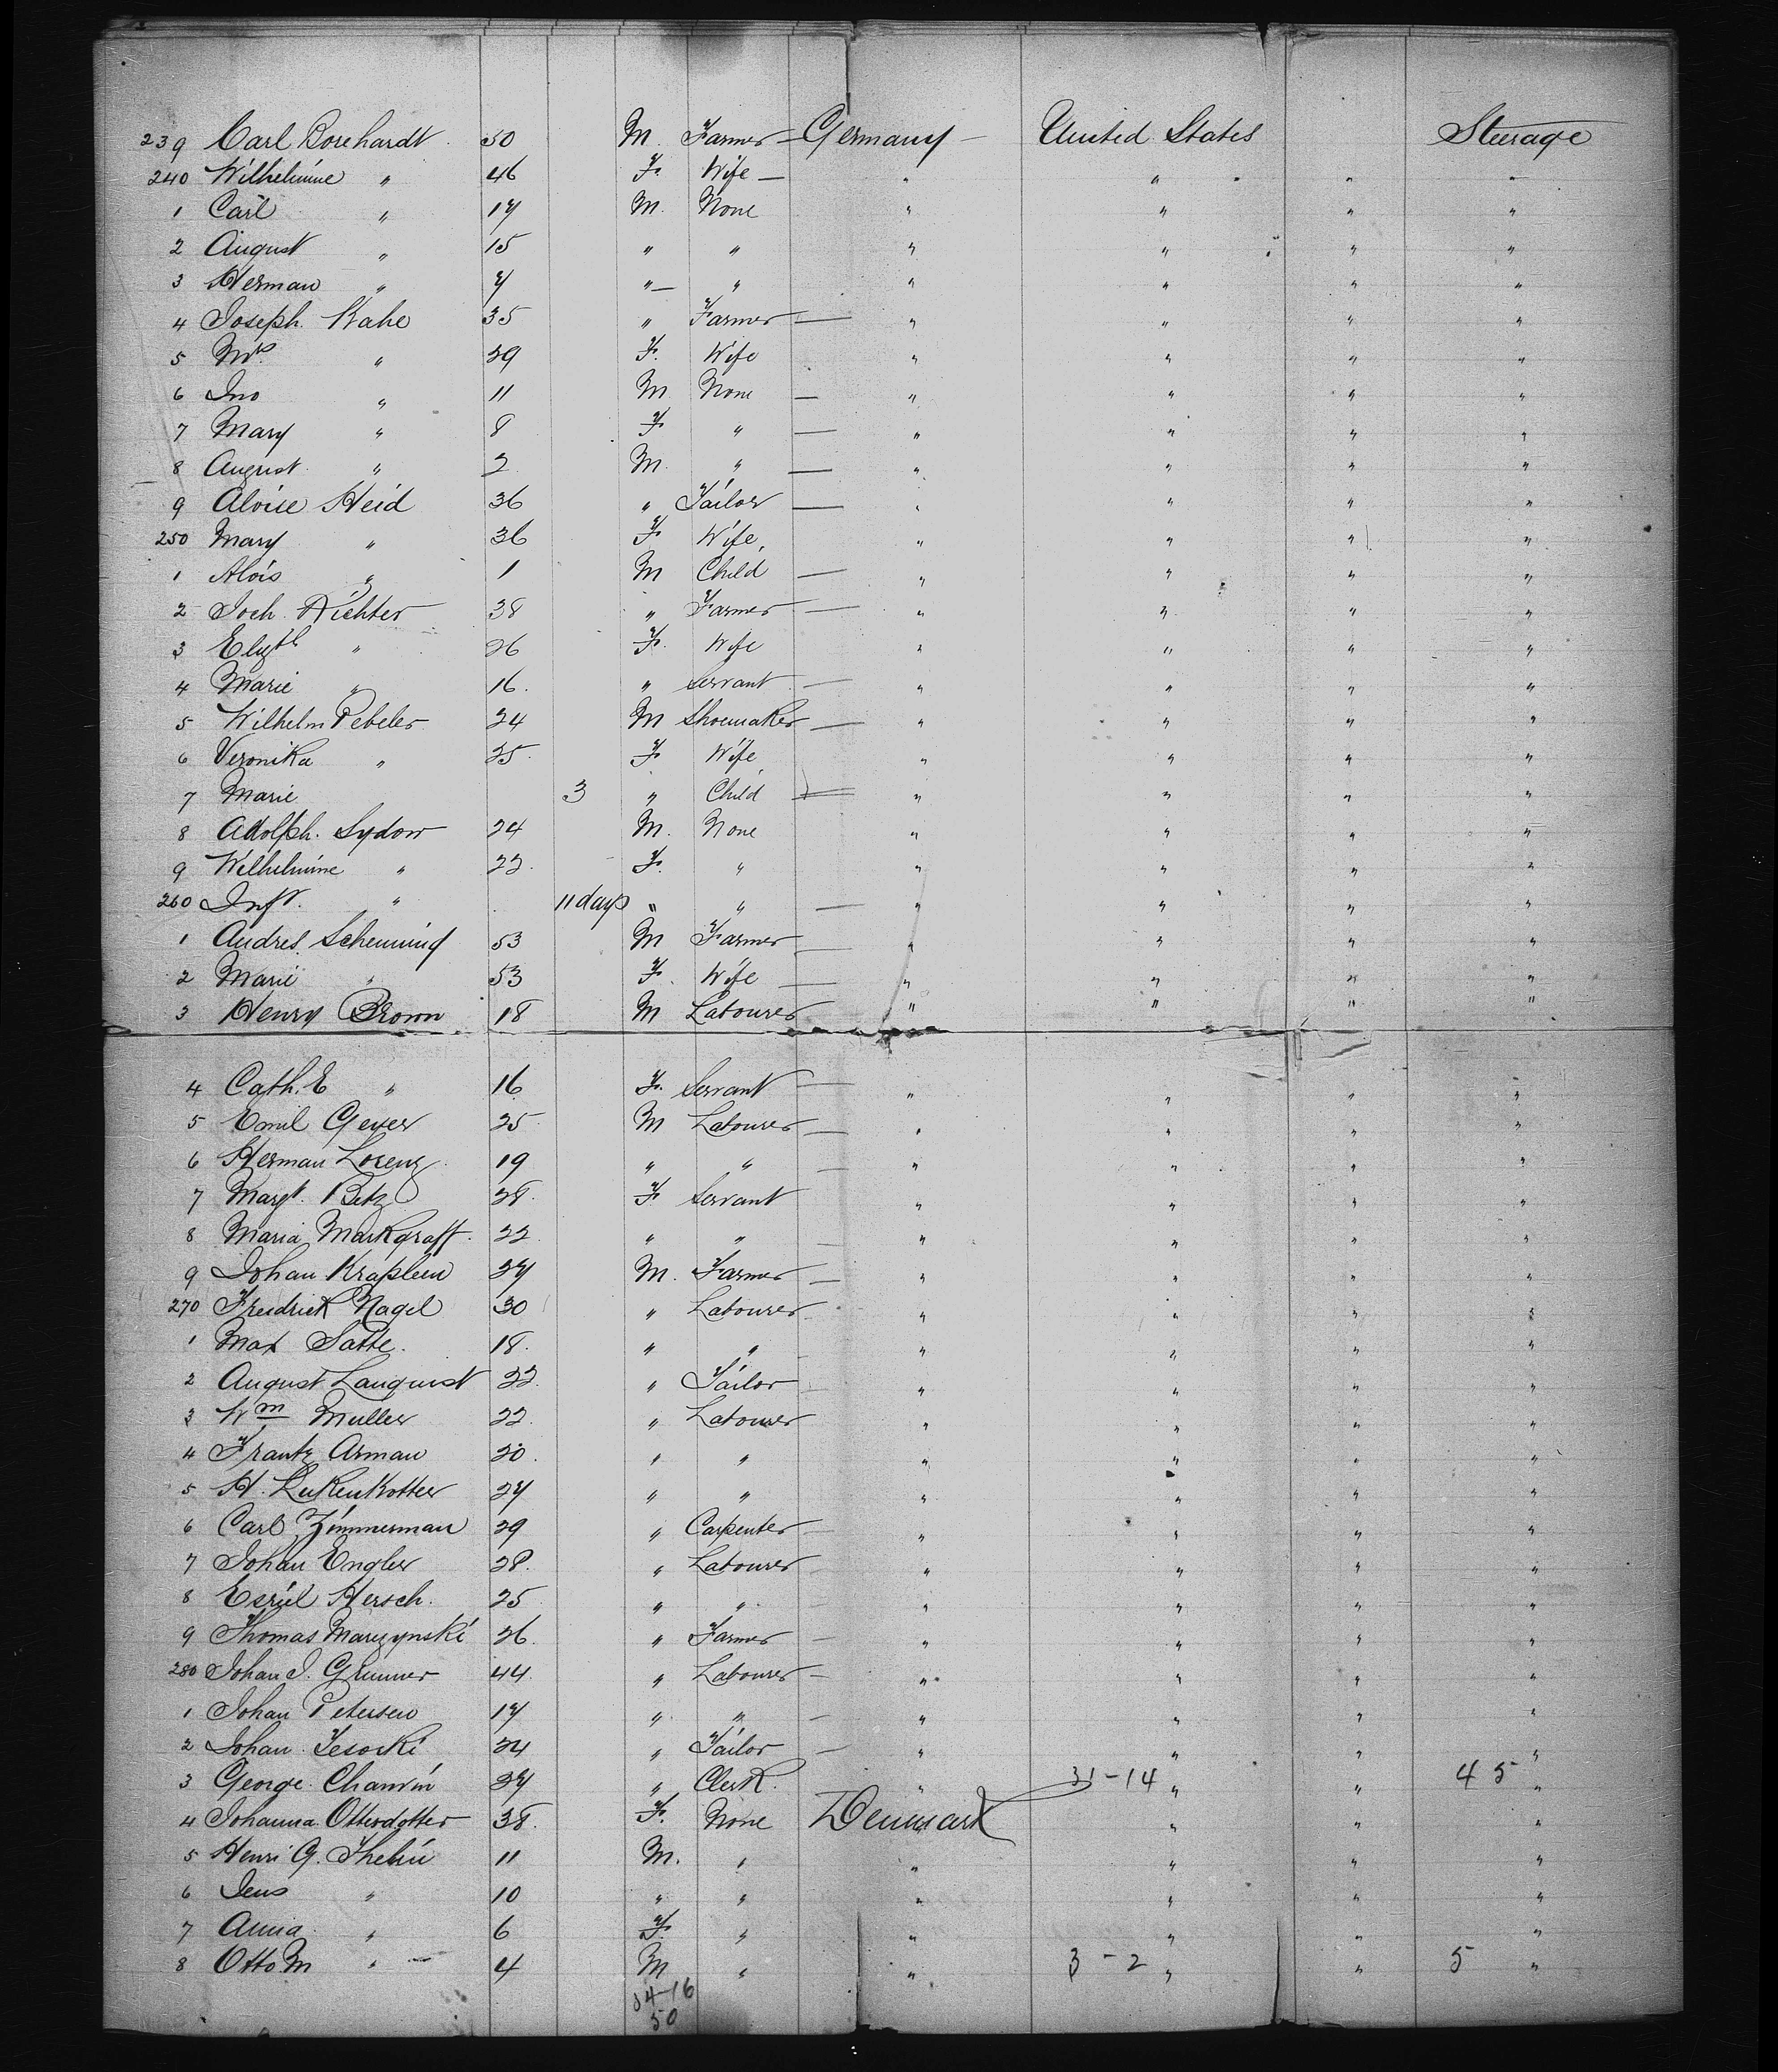 239 Carl Borchardt 50 M. Farmer Germany United States Steerage
240 Wilhelmine " 46 F. Wife " " " "
1 Carl " 17 M. None " " " "
2 August " 15 " " " " " "
3 Herman " 7 " " " " " "
4 Joseph Kahe 35 " Farmer " " " "
5 Mrs. " 39 F. Wife " " " "
6 Jno " 11 M None " " " "
7 Mary " 8 F " " " " "
8 August " 2 M. " " " " "
9 Aloise Heid 36 " Tailor " " " "
250 Mary " 36 F Wife " " " "
1 Alois " 1 M Child " " " "
2 Joch. Richter 38 " Farmer " " " "
3 Elizth " 26 F. Wife " " " "
4 Marie " 16. " Servant " " " "
5 Wilhelm Pebeler 24 M Shoemaker " " " "
6 Veronika " 25. F Wife " " " "
7 Marie 3 " Child " " " "
8 Adolph. Sydow 24 M. None " " " "
9 Wilhelmine " 22. F. " " " " "
260 Inft. " 11 days " " " " " "
1 Andres. Schenning 53 M Farmer " " " "
2 Marie " 53 F. Wife " " " "
3 Henry Brown 18 M Labourer " " " "
4 Cath. E " 16 F. Servant " " " "
5 Emil Geyer 25 M Labourer " " " "
6 Herman Lorenz 19 " " " " " "
7 Margt. Betz 28. F Servant " " " "
8 Maria Markgraff. 22. " " " " " "
9 Johan Kraplein 27 M. Farmer " " " "
270 Freidrick Nagel 30 " Labourer " " " "
1 Max Satte. 18. " " " " " "
2 August Lanquist 22. " Tailor " " " "
3 Wm Muller 22. " Labourer " " " "
4 Frantz Arman 20. " " " " " "
5 H. Lukenkotter 27 " " " " " "
6 Carl Zimmerman 29 " Carpenter " " " "
7 Johan Engler 28. " Labourer " " " "
8 Esriel Hersch. 25 " " " " " "
9 Thomas Marczynski 26. " Farmer " " " "
280 Johan J. Grunner 44. " Labourer " " " "
1 Johan Petersen 17 " " " " " "
2 Johan Jesorki 24 " Tailor " " " "
3 George Chanvin 27 " Clerk. " 31-14 " " 45 "
4 Johanna Ottersdotter 38. F. None Denmark " " "
5 Henri G. Thelin 11 M. " " " " "
6 Jens " 10 " " " " " "
7 Anna " 6 F. " " " " "
8 Otto M " 4 M " " 3-2 " " 5 "
34-16
50